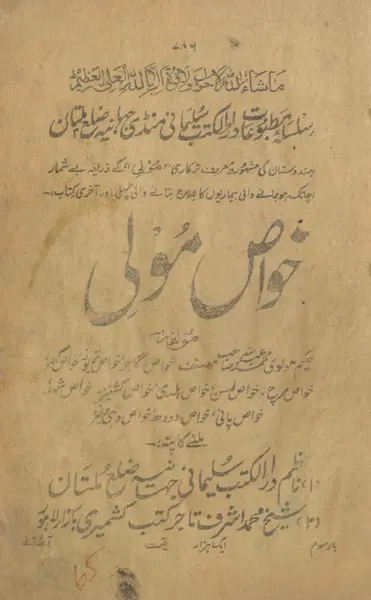 ۷۸۶
ماشاء اللہ لاحول ولا قوۃ الا باللہ العلی العظیم
سلسلہ مطبوعات دارالکتب سلیمانی منڈی جہانیہ ضلع ملتان
ہندوستان کی مشہور و معروف ترکاری "مولی" کے ذریعہ بے شمار
اچانک ہوجانے والی بیماریوں کا علاج بتانے والی پہلی اور آخری کتاب:۔
خواص مولی
مؤلفہ
حکیم مولوی محمد عبداللہ صاحب مصنف خواص گاجر خواص تمباکو خواص گھیکوار
خواص مرچ۔ خواص لہسن خواص ہلدی خواص کشنیز خواص شہد
خواص پانی خواص دودھ خواص دہی وغیرہ
ملنے کا پتہ:۔
(۱) ناظم دارالکتب سلیمانی جہانیہ ضلع ملتان
(۲) شیخ محمد اشرف تاجر کتب کشمیری بازار لاہور
بار سوم ایک ہزار قیمت آٹھ آنے